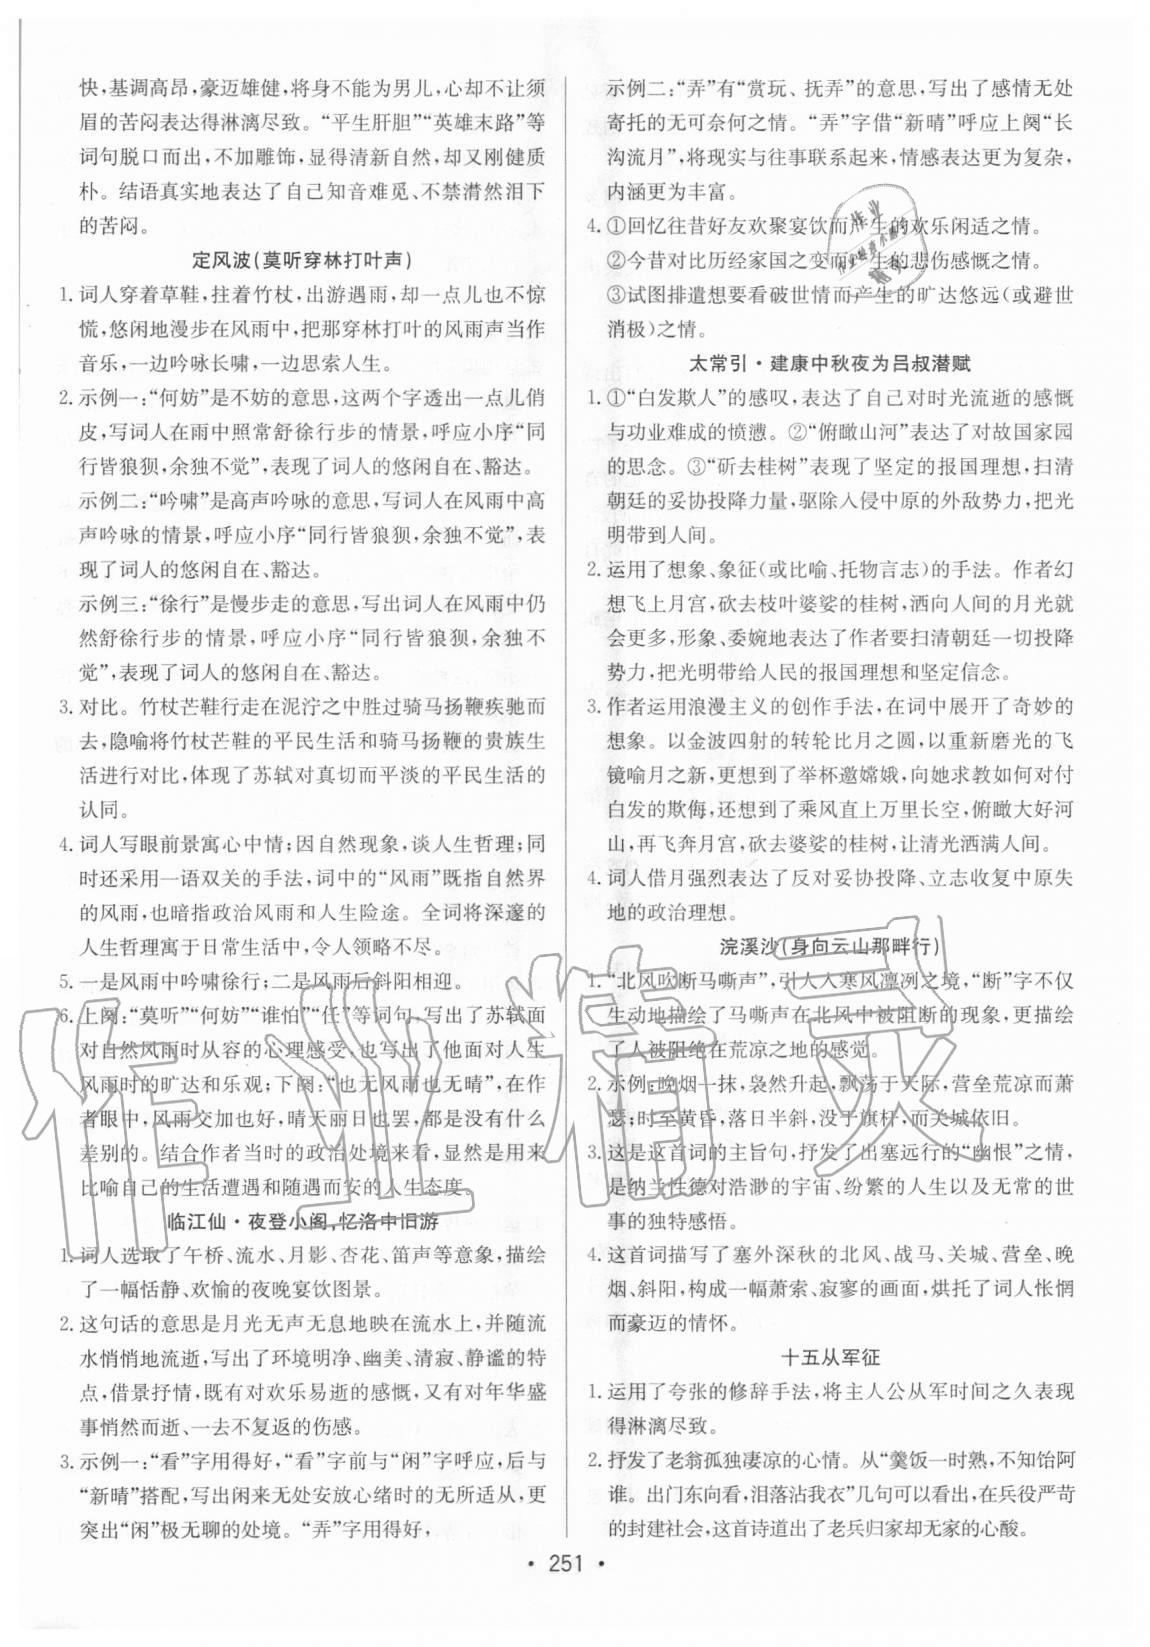 快,基调高昂,豪迈雄健,将身不能为男儿,心却不让须
眉的苦闷表达得淋漓尽致。“平生肝胆”“英雄末路”等
词句脱口而出,不加雕饰,显得清新自然,却又刚健质
朴。结语真实地表达了自己知音难觅、不禁潸然泪下
的苦闷。
定风波(莫听穿林打叶声)
1. 词人穿着草鞋,拄着竹杖,出游遇雨,却一点儿也不惊
慌,悠闲地漫步在风雨中,把那穿林打叶的风雨声当作
音乐,一边吟咏长啸,一边思索人生。
2. 示例一:“何妨”是不妨的意思,这两个字透出一点儿俏
皮,写词人在雨中照常舒徐行步的情景,呼应小序“同
行皆狼狈,余独不觉”,表现了词人的悠闲自在、豁达。
示例二:“吟啸”是高声吟咏的意思,写词人在风雨中高
声吟咏的情景,呼应小序“同行皆狼狈,余独不觉”,表
现了词人的悠闲自在、豁达。
示例三:“徐行”是慢步走的意思,写出词人在风雨中仍
然舒徐行步的情景,呼应小序“同行皆狼狈,余独不
觉”,表现了词人的悠闲自在、豁达。
3. 对比。竹杖芒鞋行走在泥泞之中胜过骑马扬鞭疾驰而
去,隐喻将竹杖芒鞋的平民生活和骑马扬鞭的贵族生
活进行对比,体现了苏轼对真切而平淡的平民生活的
认同。
4. 词人写眼前景寓心中情;因自然现象,谈人生哲理;同
时还采用一语双关的手法,词中的“风雨”既指自然界
的风雨,也暗指政治风雨和人生险途。全词将深邃的
人生哲理寓于日常生活中,令人领略不尽。
5. 一是风雨中吟啸徐行;二是风雨后斜阳相迎。
6. 上阕:“莫听”“何妨”“谁怕”“任”等词句,写出了苏轼面
对自然风雨时从容的心理感受,也写出了他面对人生
风雨时的旷达和乐观;下阕:“也无风雨也无晴”,在作
者眼中,风雨交加也好,晴天丽日也罢,都没有什么
差别的。结合作者当时的政治处境来看,显然是用来
比喻自己的生活遭遇和随遇而安的人生态度。
临江仙·夜登小阁,忆洛中旧游
1. 词人选取了午桥、流水、月影、杏花、笛声等意象,描绘
了一幅恬静、欢愉的夜晚宴饮图景。
2. 这句话的意思是月光无声无息地映在流水上,并随流
水悄悄地流逝,写出了环境明净、幽美、清寂、静谧的特
点,借景抒情,既有对欢乐易逝的感慨,又有对年华盛
事悄然而逝、一去不复返的伤感。
3. 示例一:“看”字用得好,“看”字前与“闲”字呼应,后与
“新晴”搭配,写出闲来无处安放心绪时的无所适从,更
突出“闲”极无聊的处境。“弄”字用得好,
示例二:“弄”有“赏玩、抚弄”的意思,写出了感情无处
寄托的无可奈何之情。“弄”字借“新晴”呼应上阕“长
沟流月”,将现实与往事联系起来,情感表达更为复杂,
内涵更为丰富。
4. ①回忆往昔好友欢聚宴饮而产生的欢乐闲适之情。
②今昔对比历经家国之变而产生的悲伤感慨之情。
③试图排遣想要看破世情而产生的旷达悠远(或避世
消极)之情。
太常引·建康中秋夜为吕叔潜赋
1. ①“白发欺人”的感叹,表达了自己对时光流逝的感慨
与功业难成的愤懑。②“俯瞰山河”表达了对故国家园
的思念。③“斫去桂树”表现了坚定的报国理想,扫清
朝廷的妥协投降力量,驱除入侵中原的外敌势力,把光
明带到人间。
2. 运用了想象、象征(或比喻、托物言志)的手法。作者幻
想飞上月宫,砍去枝叶婆娑的桂树,洒向人间的月光就
会更多,形象、委婉地表达了作者要扫清朝廷一切投降
势力,把光明带给人民的报国理想和坚定信念。
3. 作者运用浪漫主义的创作手法,在词中展开了奇妙的
想象。以金波四射的转轮比月之圆,以重新磨光的飞
镜喻月之新,更想到了举杯邀嫦娥,向她求教如何对付
白发的欺侮,还想到了乘风直上万里长空,俯瞰大好河
山,再飞奔月宫,砍去婆娑的桂树,让清光洒满人间。
4. 词人借月强烈表达了反对妥协投降、立志收复中原失
地的政治理想。
浣溪沙(身向云山那畔行)
1. “北风吹断马嘶声”,引人入寒风凛冽之境,“断”字不仅
生动地描绘了马嘶声在北风中被阻断的现象,更描绘
了人被阻绝在荒凉之地的感觉。
2. 示例:晚烟一抹,袅然升起,飘荡于天际,营垒荒凉而萧
瑟;时至黄昏,落日半斜,没于旗杆,而关城依旧。
3. 这是这首词的主旨句,抒发了出塞远行的“幽恨”之情,
是纳兰性德对浩渺的宇宙、纷繁的人生以及无常的世
事的独特感悟。
4. 这首词描写了塞外深秋的北风、战马、关城、营垒、晚
烟、斜阳,构成一幅萧索、寂寥的画面,烘托了词人怅惘
而豪迈的情怀。
十五从军征
1. 运用了夸张的修辞手法,将主人公从军时间之久表现
得淋漓尽致。
2. 抒发了老翁孤独凄凉的心情。从“羹饭一时熟,不知饴阿
谁。出门东向看,泪落沾我衣”几句可以看出,在兵役严苛
的封建社会,这首诗道出了老兵归家却无家的心酸。
· 251 ·
作业精灵